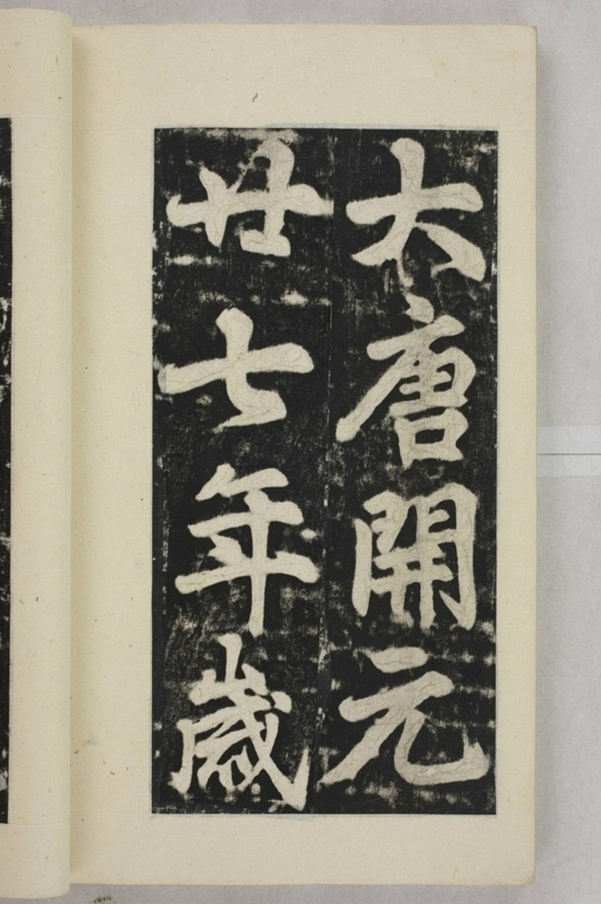 大唐開元
廿七年歲